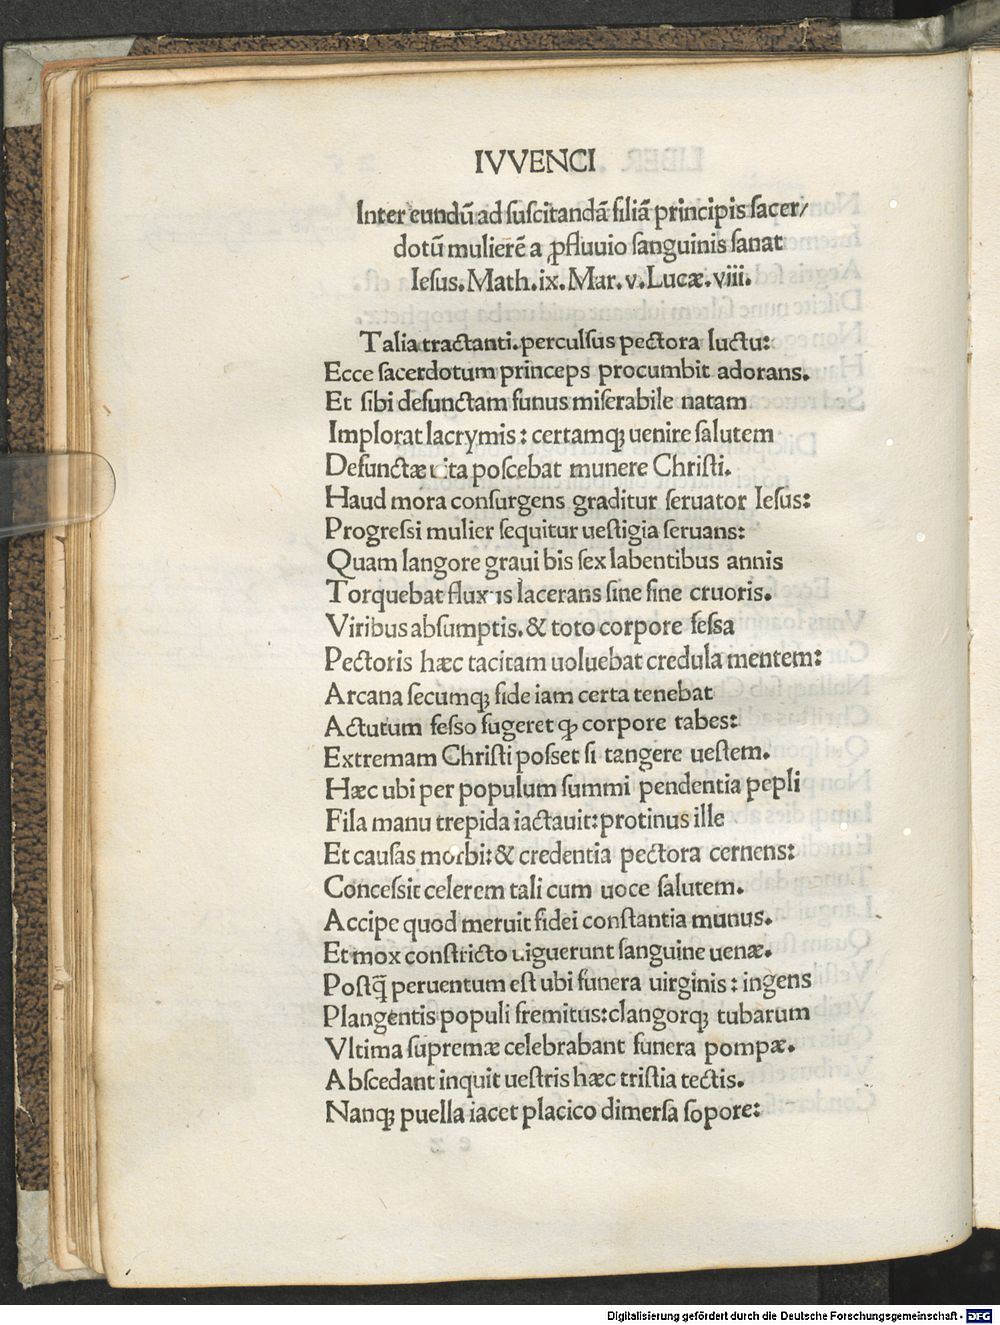 IVVENCI
Inter eundū ad ſuſcitandā filiā principis ſacer/
dotū mulierē a ꝓfluuio ſanguinis ſanat
Ieſus. Math. ix. Mar. v. Lucæ. viii.
Talia tractanti. perculſus pectora luctu:
Ecce ſacerdotum princeps procumbit adorans.
Et ſibi defunctam funus miſerabile natam
Implorat lacrymis: certamqꝫ uenire ſalutem
Defunctæ uita poſcebat munere Chriſti.
Haud mora conſurgens graditur ſeruator Ieſus:
Progreſſi mulier ſequitur ueſtigia ſeruans:
Quam langore graui bis ſex labentibus annis
Torquebat fluxus lacerans ſine fine cruoris.
Viribus abſumptis. & toto corpore feſſa
Pectoris hæc tacitam uoluebat credula mentem:
Arcana ſecumqꝫ fide iam certa tenebat
Actutum feſſo fugeret ꝙ corpore tabes:
Extremam Chriſti poſſet ſi tangere ueſtem.
Hæc ubi per populum ſummi pendentia pepli
Fila manu trepida iactauit: protinus ille
Et cauſas morbi: & credentia pectora cernens:
Conceſſit celerem tali cum uoce ſalutem.
Accipe quod meruit fidei conſtantia munus.
Et mox conſtricto uiguerunt ſanguine uenæ.
Poſtꝗ̄ peruentum eſt ubi funera uirginis: ingens
Plangentis populi fremitus: clangorqꝫ tubarum
Vltima ſupremæ celebrabant funera pompæ.
Abſcedant inquit ueſtris hæc triſtia tectis.
Nanqꝫ puella iacet placico dimerſa ſopore:
Digitalisierung gefördert durch die Deutsche Forschungsgemeinschaft - DFG